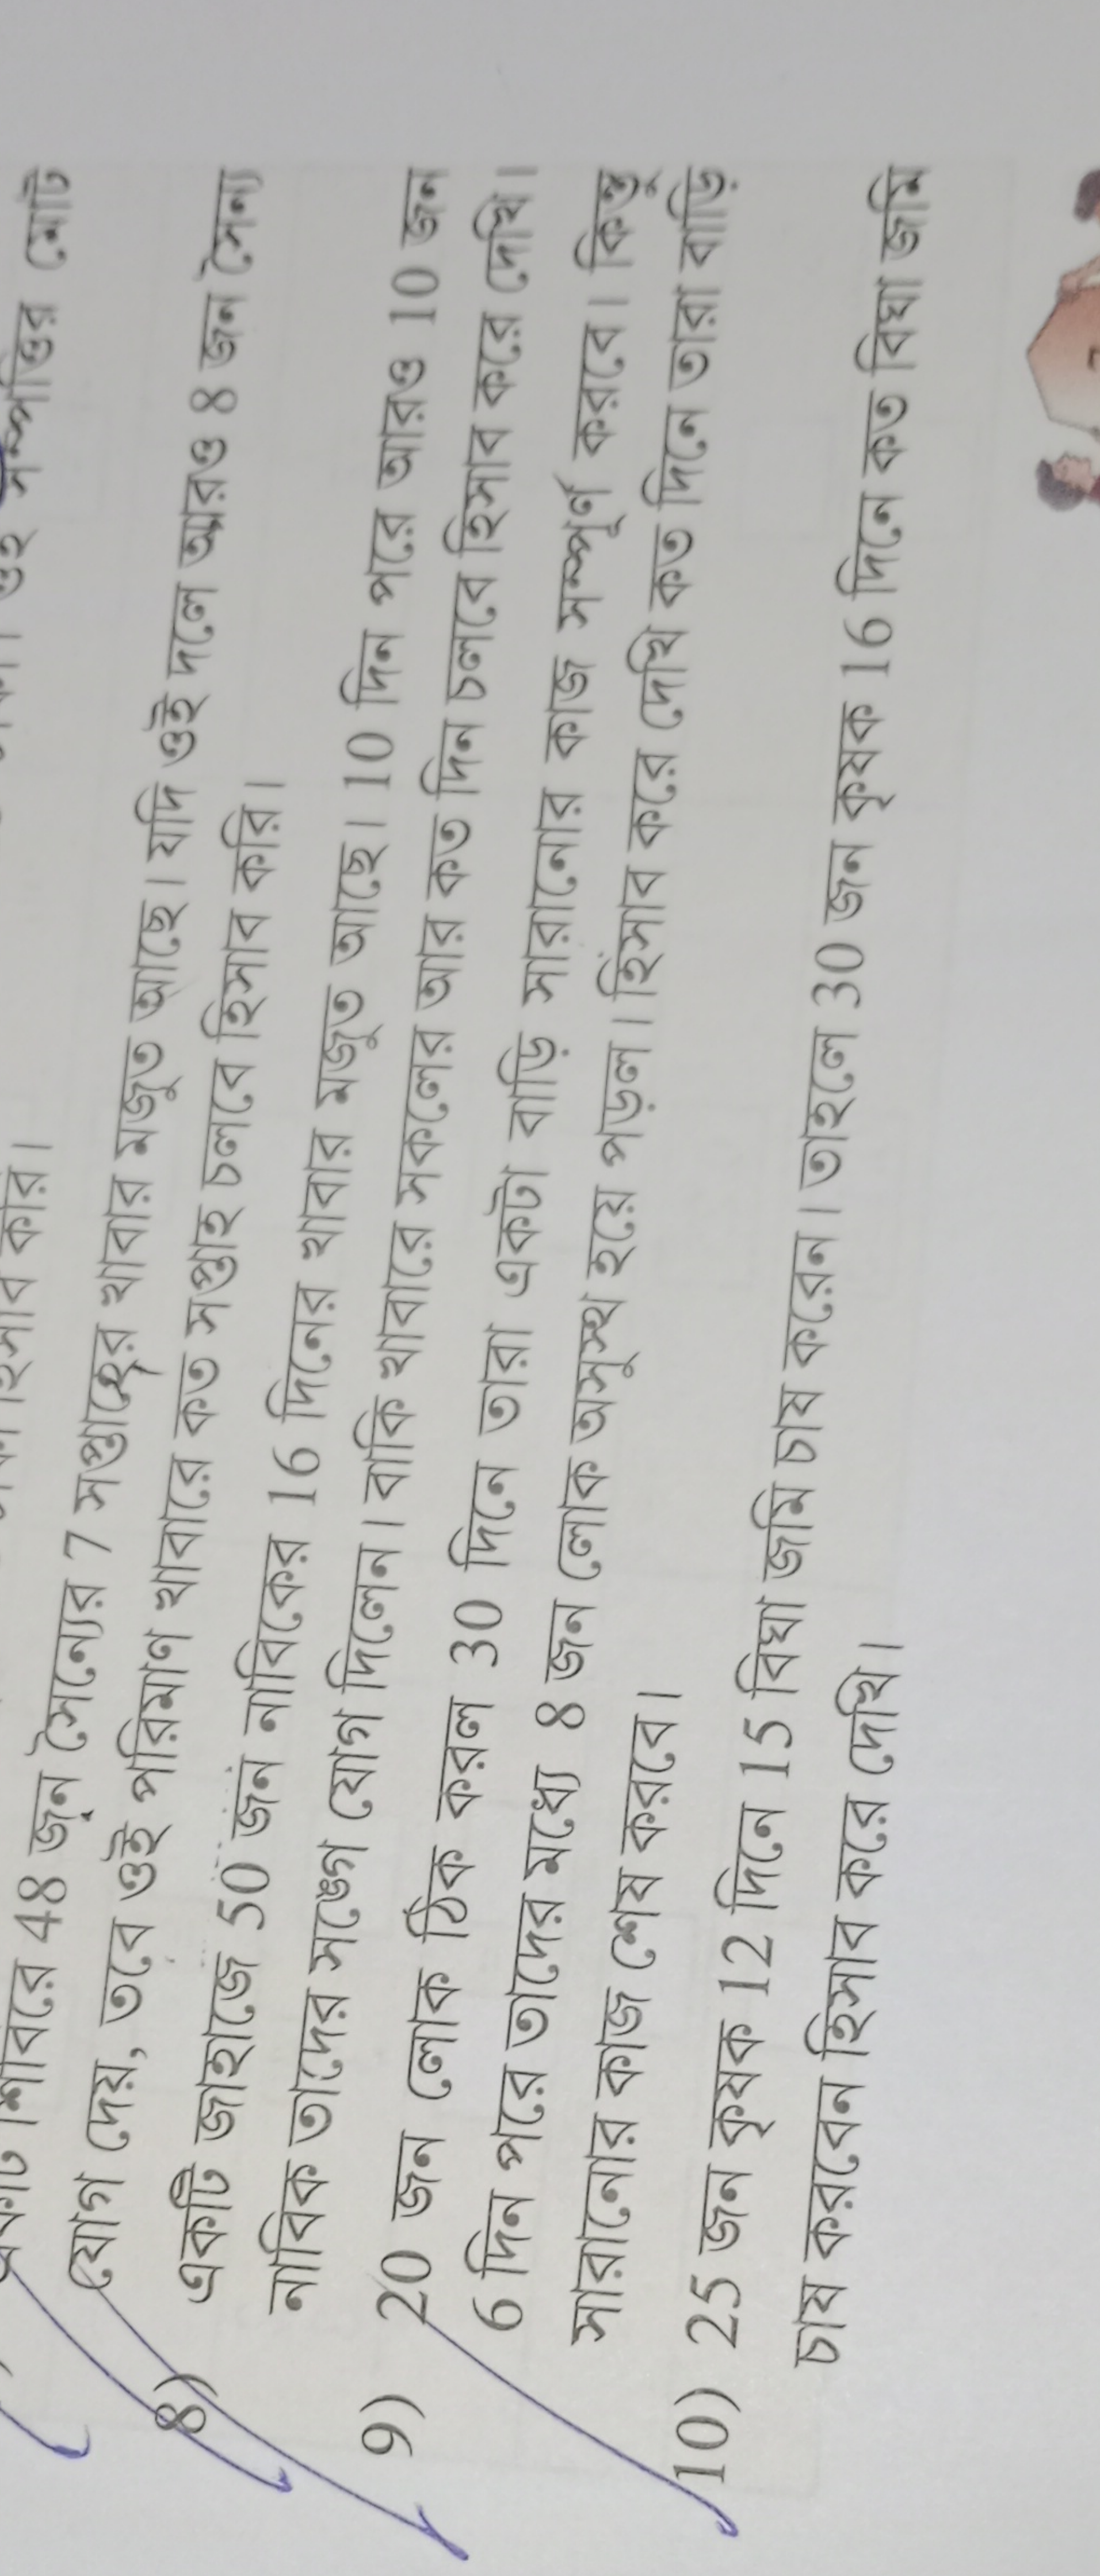 হিসাব করি।
ওই সম্পত্তির মোট
শিবিরে 48 জন সৈন্যের 7 সপ্তাহের খাবার মজুত আছে। যদি ওই দলে আরও 8 জন সৈন্য
যোগ দেয়, তবে ওই পরিমাণ খাবারে কত সপ্তাহ চলবে হিসাব করি।
8) একটি জাহাজে 50 জন নাবিকের 16 দিনের খাবার মজুত আছে। 10 দিন পরে আরও 10 জন
নাবিক তাদের সঙ্গে যোগ দিলেন। বাকি খাবারে সকলের আর কত দিন চলবে হিসাব করে দেখি।
9) 20 জন লোক ঠিক করল 30 দিনে তারা একটা বাড়ি সারানোর কাজ সম্পূর্ণ করবে। কিন্তু
6 দিন পরে তাদের মধ্যে 8 জন লোক অসুস্থ হয়ে পড়ল। হিসাব করে দেখি কত দিনে তারা বাড়ি
সারানোর কাজ শেষ করবে।
10) 25 জন কৃষক 12 দিনে 15 বিঘা জমি চাষ করেন। তাহলে 30 জন কৃষক 16 দিনে কত বিঘা জমি
চাষ করবেন হিসাব করে দেখি।